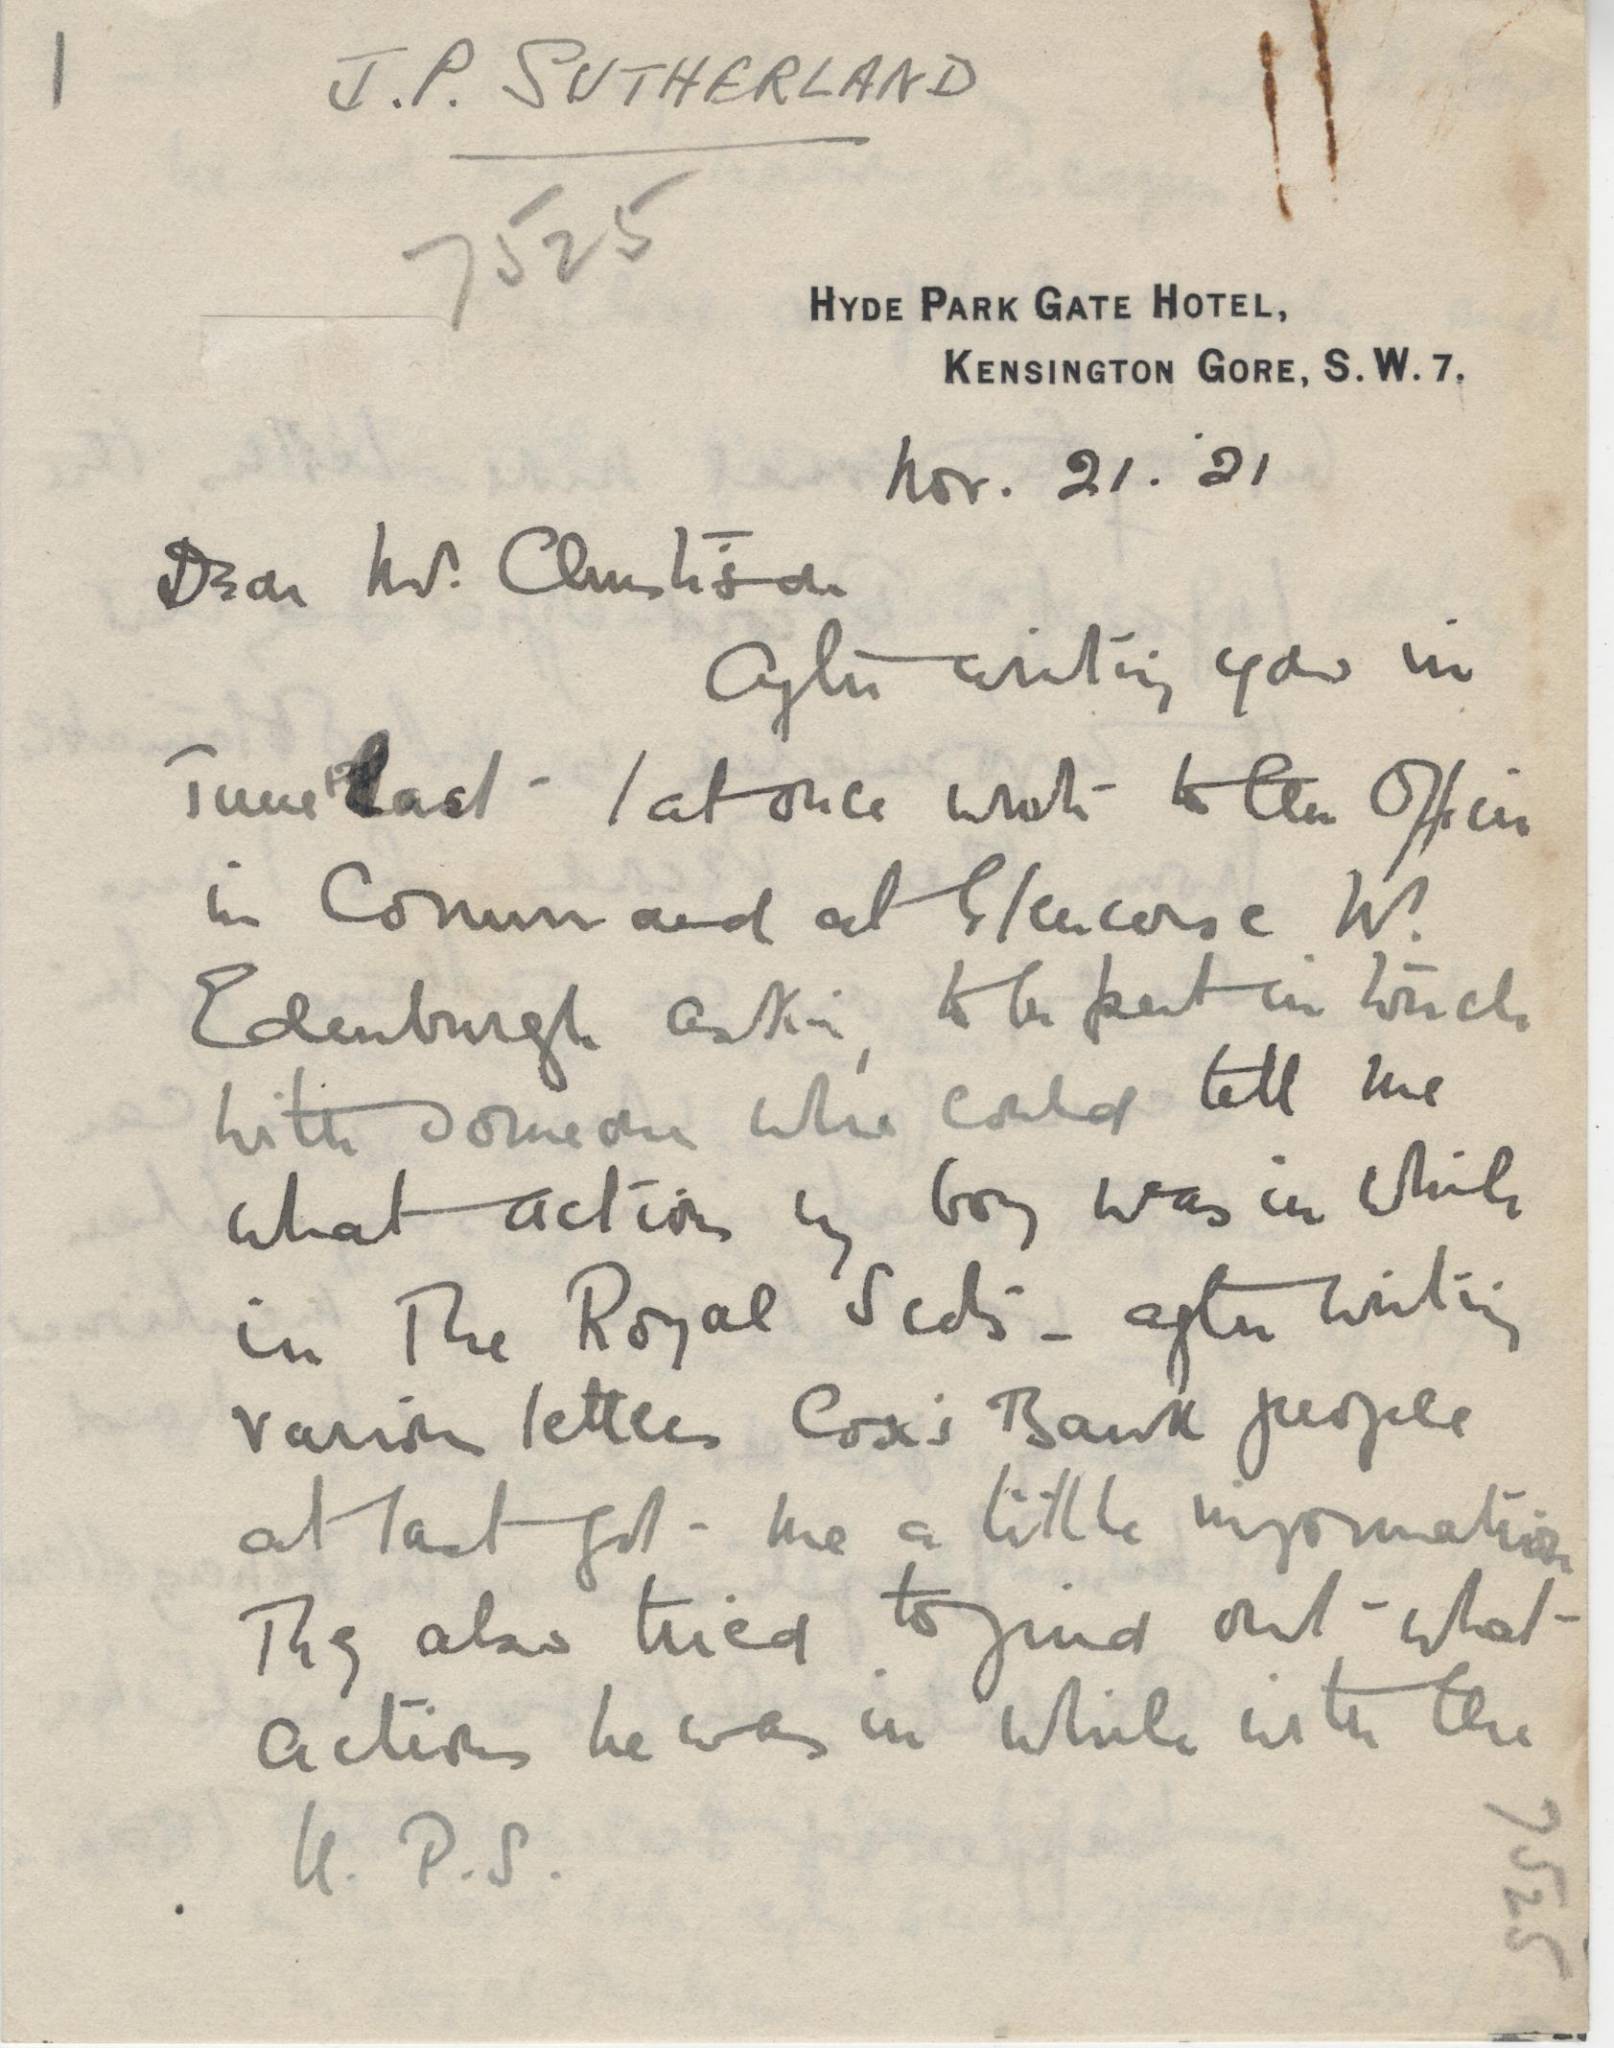 1
J.P. SUTHERLAND
7525
HYDE PARK GATE HOTEL,
KENSINGTON GORE, S.W.7.
Nov. 21. '21
Dear Mr. Christison
After writing you in
June last - I at once wrote to the Officer
in Command at Glencorse Nr.
Edenburgh asking to be put in touch
with someone who could tell me
what actions my boy was in while
in The Royal Scots - after writing
various letters Cox's Bank people
at last got me a little information
They also tried to find out what
actions he was in while with the
U. P. S.
7525